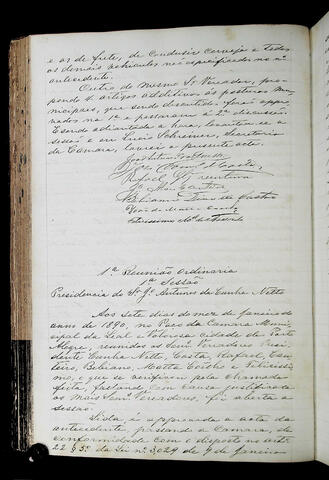 e os de frete, de conduzir cerveja e todos
os demais vehiculos não especificados no nº
antecedente.
Outro do mesmo Sr. Vereador, pro-
pondo 4 artigos additivos ás posturas mu-
nicipaes, que sendo discutido foram appro-
vados na 1ª e passaram á 2ª discussão.
E sendo adiantada a hora levantou-se a
sessão e eu Lucio Schreiner, Secretario
da Camara, lavrei a presente acta.
Rafael
Felicissimo M. de Azevedo
1ª Reunião Ordinaria
1ª Sessão
Presidencia do Sr. Jº Antunes da Cunha Netto
Aos sete dias do mez de Janeiro do
anno de 1890, no Paço da Camara Muni-
cipal da Leal e Valorosa cidade de Porto
Alegre, reunidos os Senrs. Vereadores Presi-
dente Cunha Netto, Costa, Rafael, Can-
teiro, Bibiano, Motta Coelho e Felicissi-
mo, o que se verificou pela chamada
feita, faltando com causa justificada
os mais Senrs. Vereadores. Foi aberta a
sessão.
Lida e approvada a acta da
antecedente, passando a Camara, de
conformidade com o disposto no artº
22 § 3º da Lei nº 3029 de 9 de Janeiro